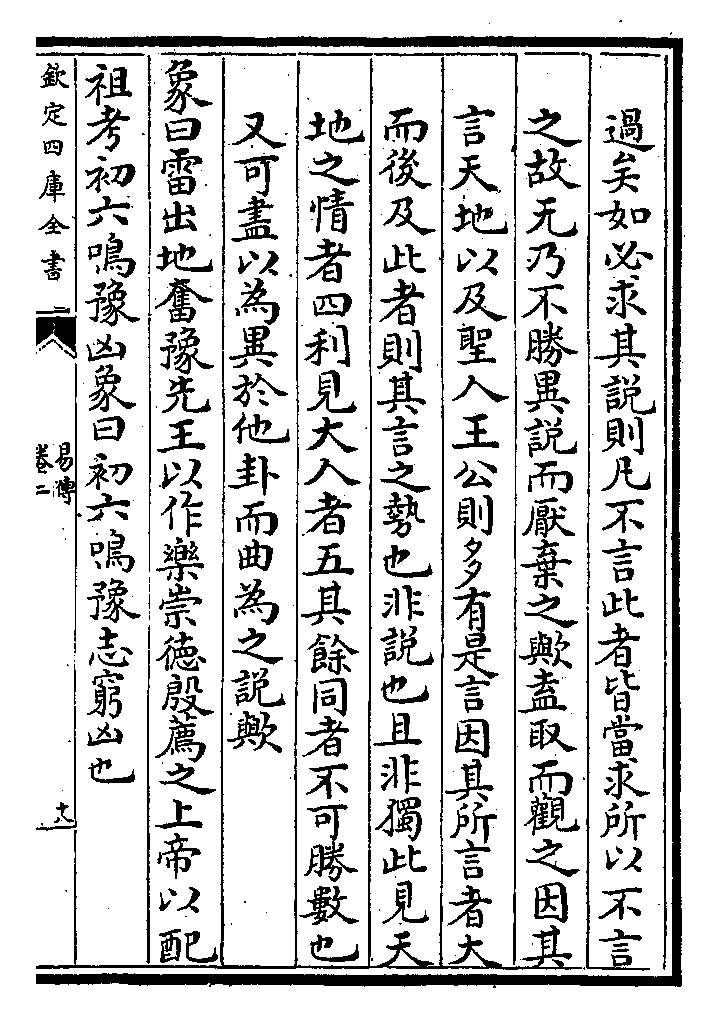 過矣如必求其説則凡不言此者皆當求所以不言
之故无乃不勝異説而厭棄之歟盍取而觀之因其
言天地以及聖人王公則多有是言因其所言者大
而後及此者則其言之勢也非説也且非獨此見天
地之情者四利見大人者五其餘同者不可勝數也
又可盡以為異於他卦而曲為之説歟
象曰雷出地奮豫先王以作樂崇德殷薦之上帝以配
祖考初六鳴豫凶象曰初六鳴豫志窮凶也
欽定四庫全書
易傳
卷二
十八